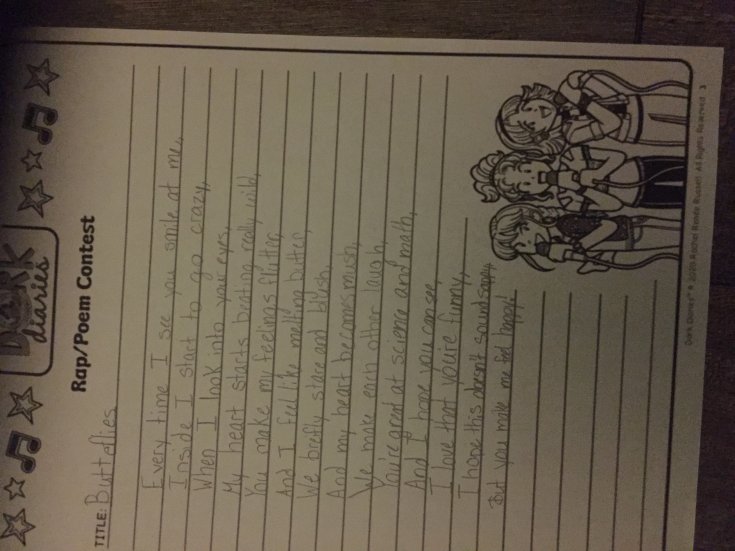 DORK
diaries
Rap/Poem Contest
TITLE: Butterflies
Every time I see you smile at me,
Inside I start to go crazy,
When I look into your eyes,
My heart starts beating really wild,
You make my feelings flutter,
And I feel like melting butter,
We briefly stare and blush,
And my heart becomes mush,
We make each other laugh,
You're great at science and math,
And I hope you can see,
I love that you're funny,
I hope this doesn't sound sappy,
But you make me feel happy!
Dork Diaries® © 2020 Rachel Renée Russell. All Rights Reserved 3